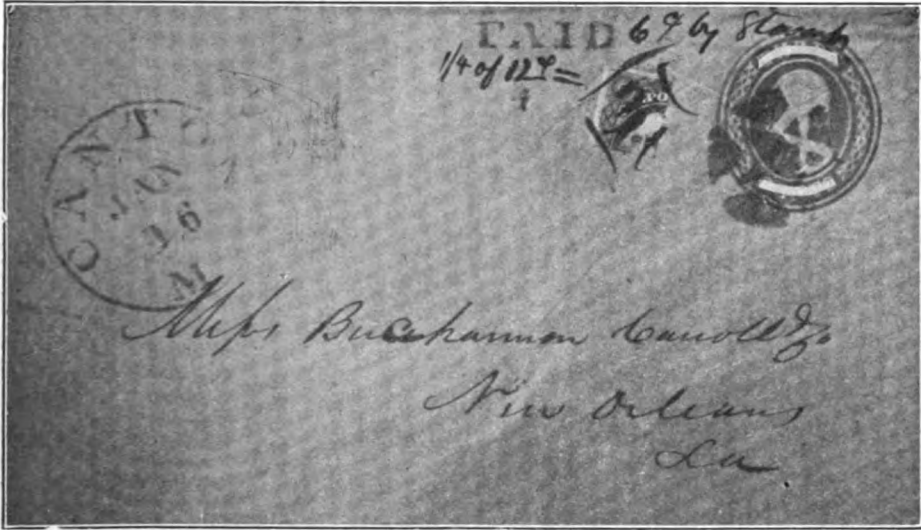 PAID 6¢ by Stamps
1/4 of 12¢ =
CANTO
JAN
16
M
Messrs Buchannon Carroll & Co
New Orleans
La